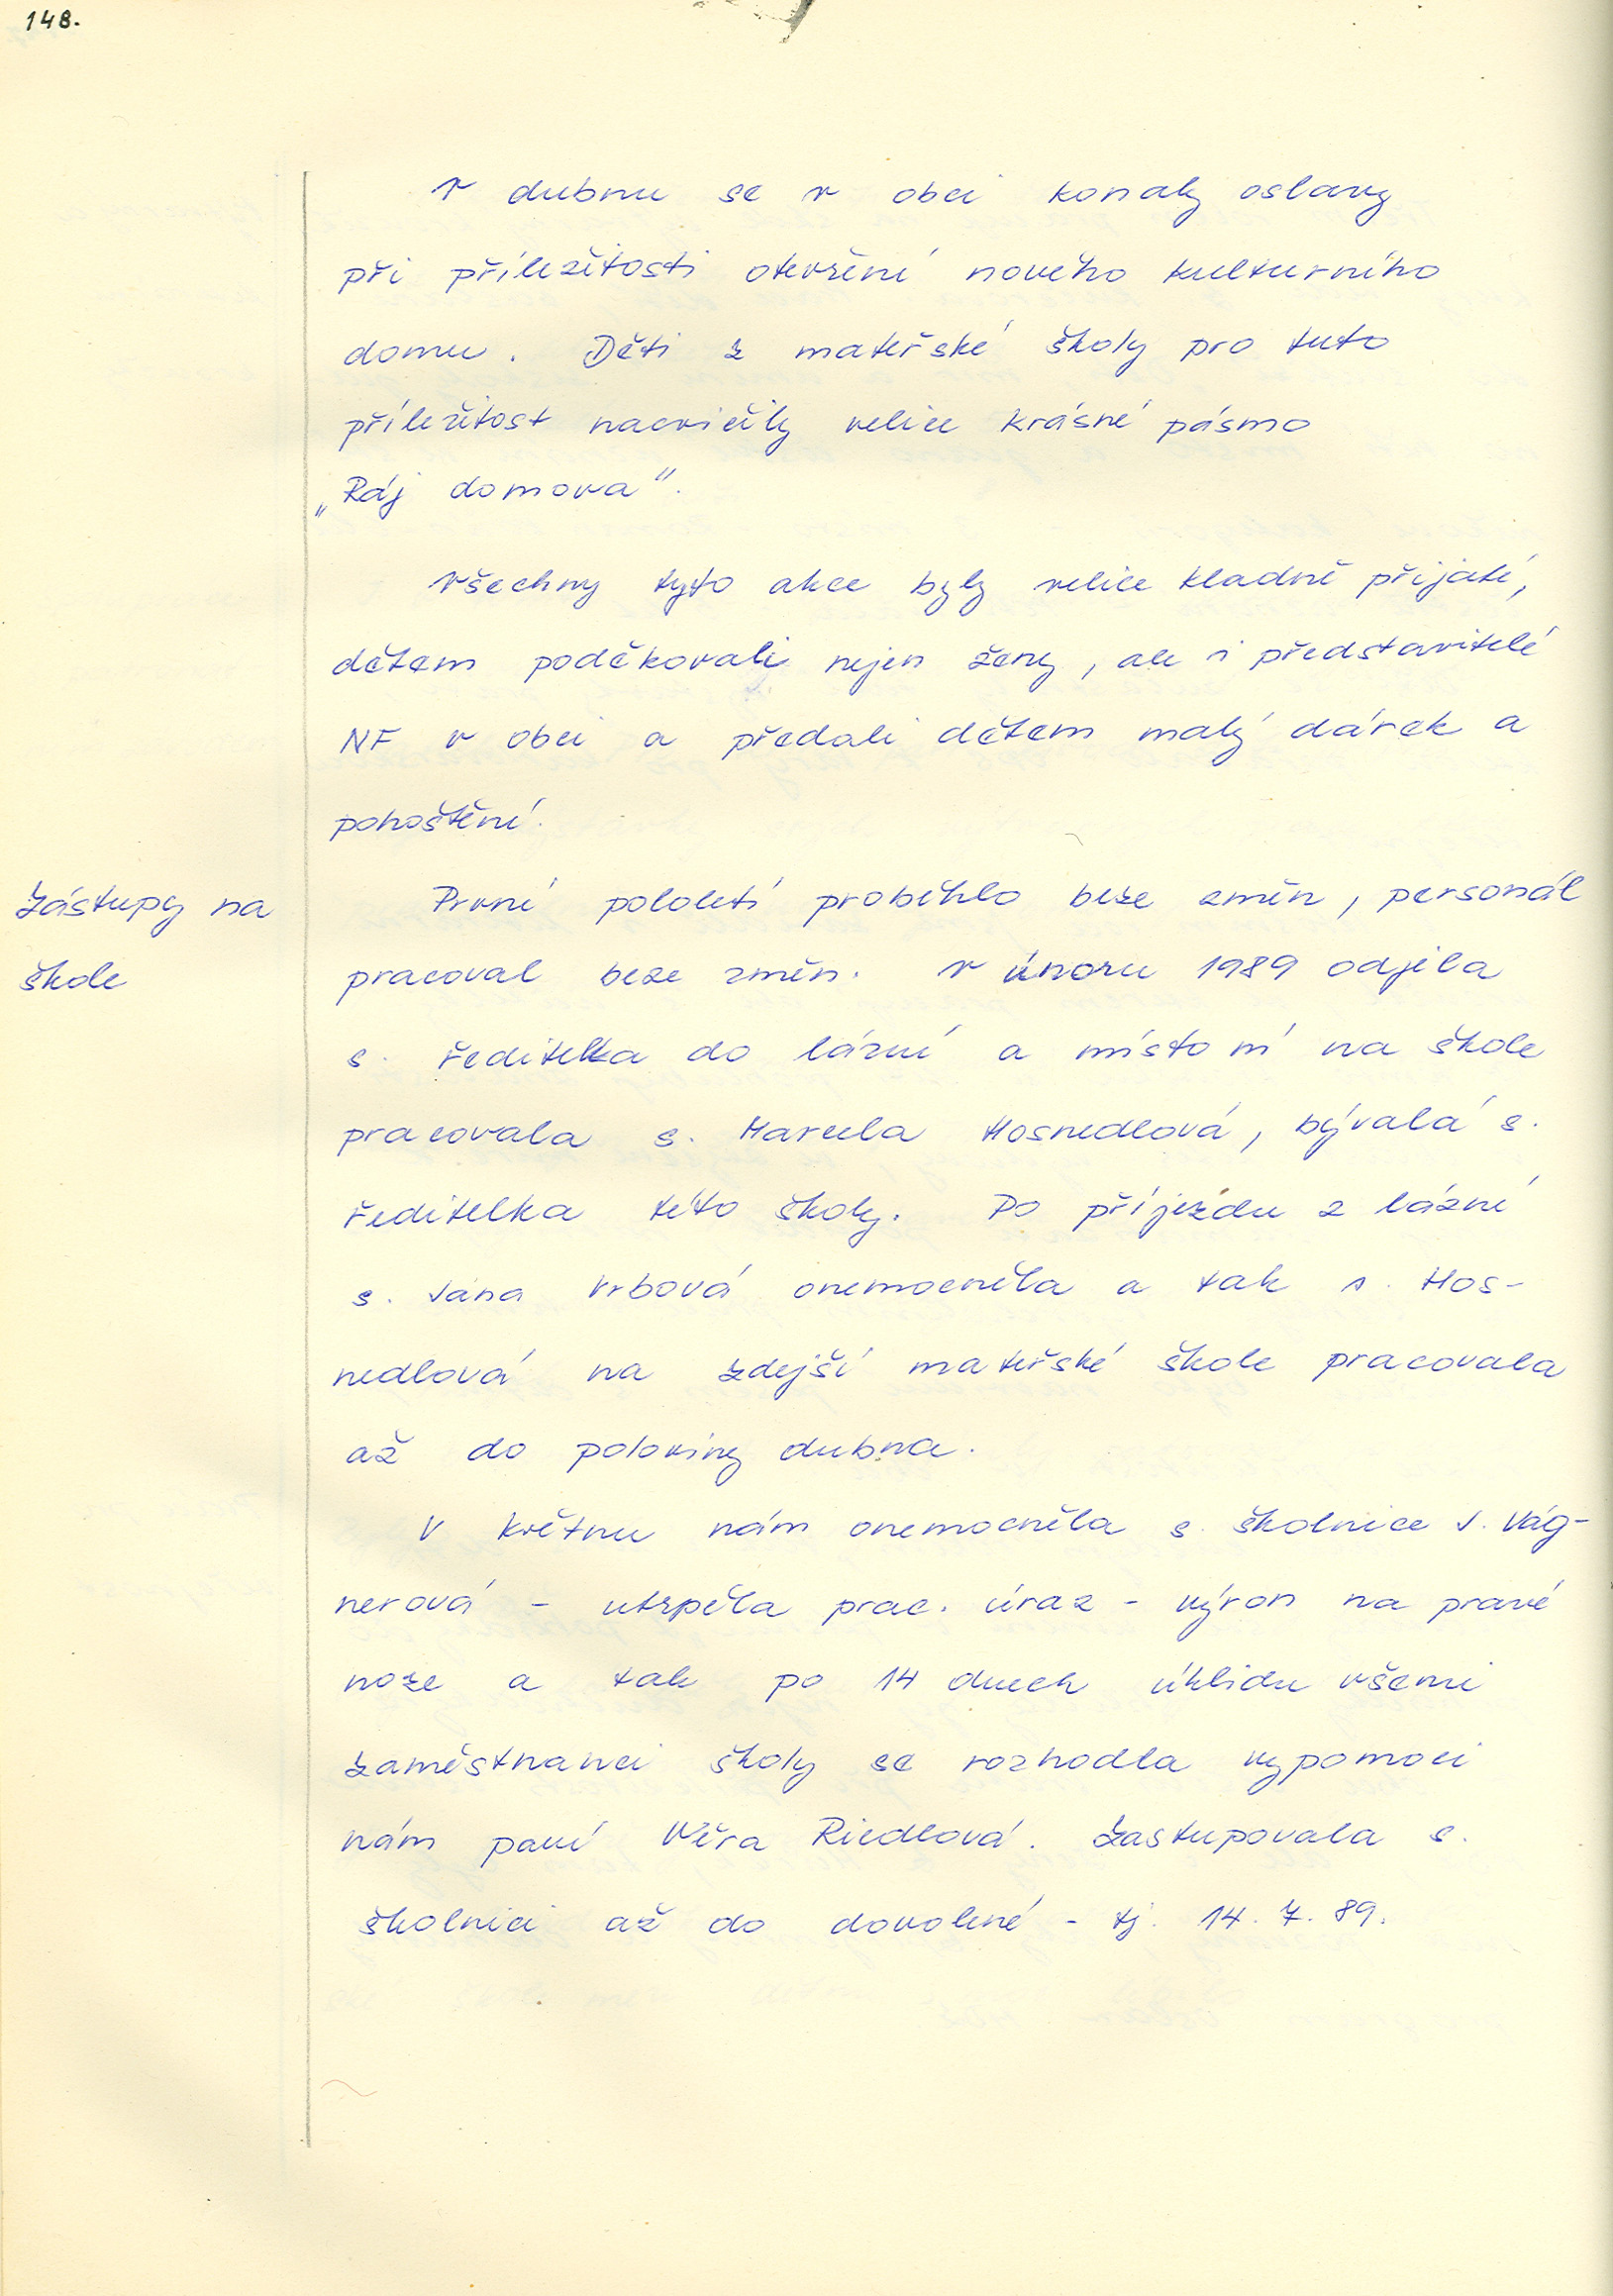 148.
V dubnu se v obci konaly oslavy
při příležitosti otevření nového kulturního
domu. Děti z mateřské školy pro tuto
příležitost nacvičily velice krásné pásmo
„Ráj domova“.
Všechny tyto akce byly velice kladně přijaté,
dětem poděkovali nejen ženy, ale i představitelé
NF v obci a předali dětem malý dárek a
pohoštění.
Zástupy na
škole
První pololetí proběhlo beze změn, personál
pracoval beze změn. V únoru 1989 odjela
s. ředitelka do lázní a místo ní na škole
pracovala s. Marcela Hosnedlová, bývalá s.
ředitelka této školy. Po příjezdu z lázní
s. Jana Vrbová onemocněla a tak s. Hos-
nedlová na zdejší mateřské škole pracovala
až do poloviny dubna.
V květnu nám onemocněla s. školnice J. Vág-
nerová - utrpěla prac. úraz - výron na pravé
noze a tak po 14 dnech úklidu všemi
zaměstnanci školy se rozhodla vypomoci
nám paní Věra Riedlová. Zastupovala s.
školnici až do dovolené - tj. 14. 7. 89.